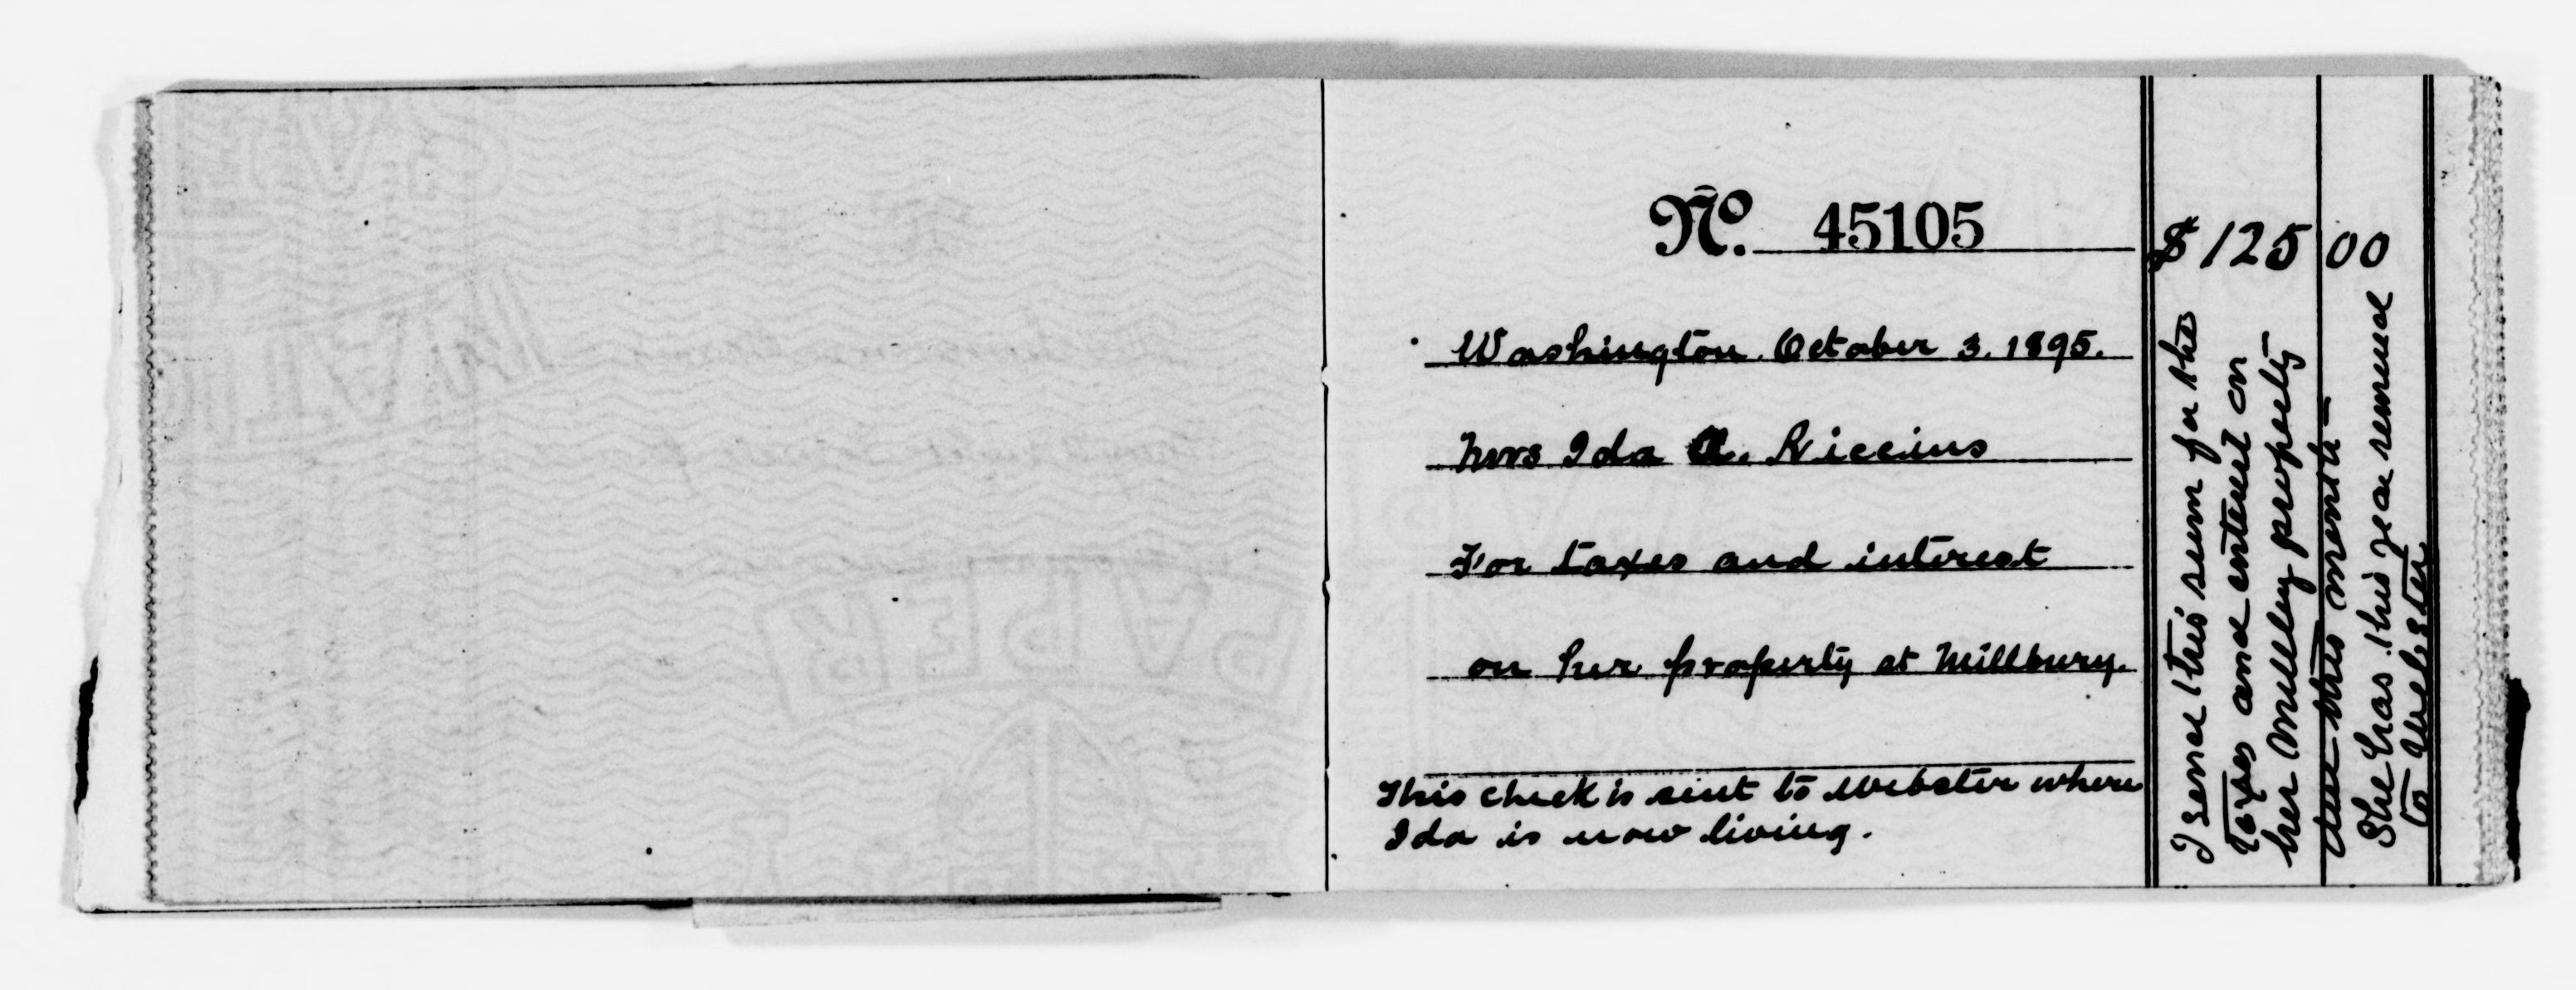 No. 45105
$125 00
Washington. October 3. 1895.
Mrs Ida A. Riccius
For taxes and interest
on her property at Millbury.
This check is sent to Webster where
Ida is now living.
I send this sum for the
Taxes and interest on
her Millbury property
due this month —
She has this year removed
to Webster